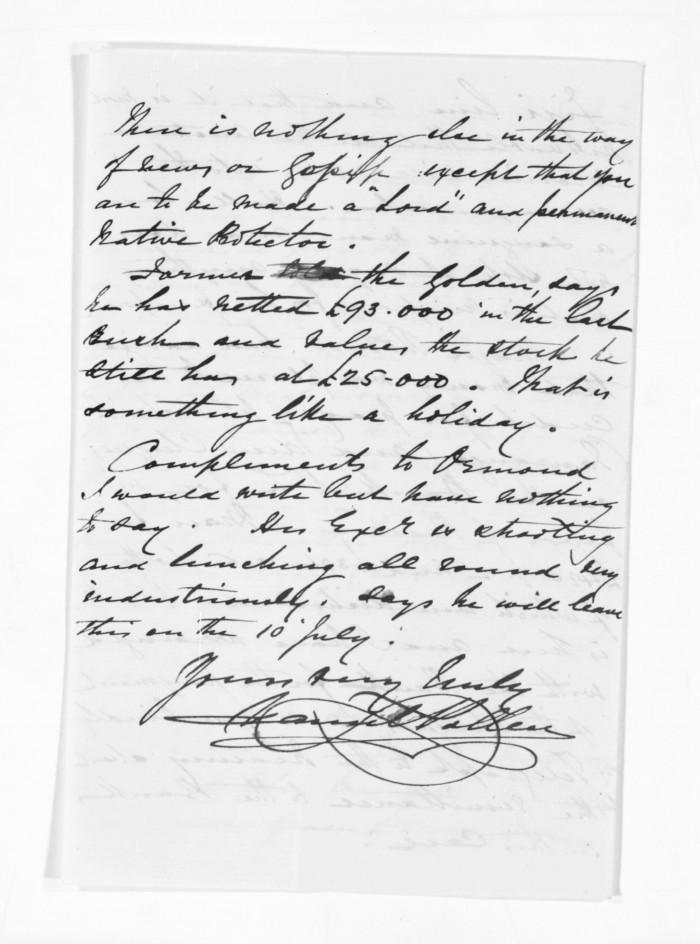 There is nothing else in the way
of news or Gossip except that you
are to be made a "Lord" and permanent
Native Protector.
Farmer the Golden, says
he has netted £93.000 in the last
and values the stock he
still has at £25-000. That is
something like a holiday.
Compliments to Ormond
I would write but have nothing
to say. His Excy is shooting
and lunching all round very
industriously. Says he will leave
this on the 10 July.
Yours very truly